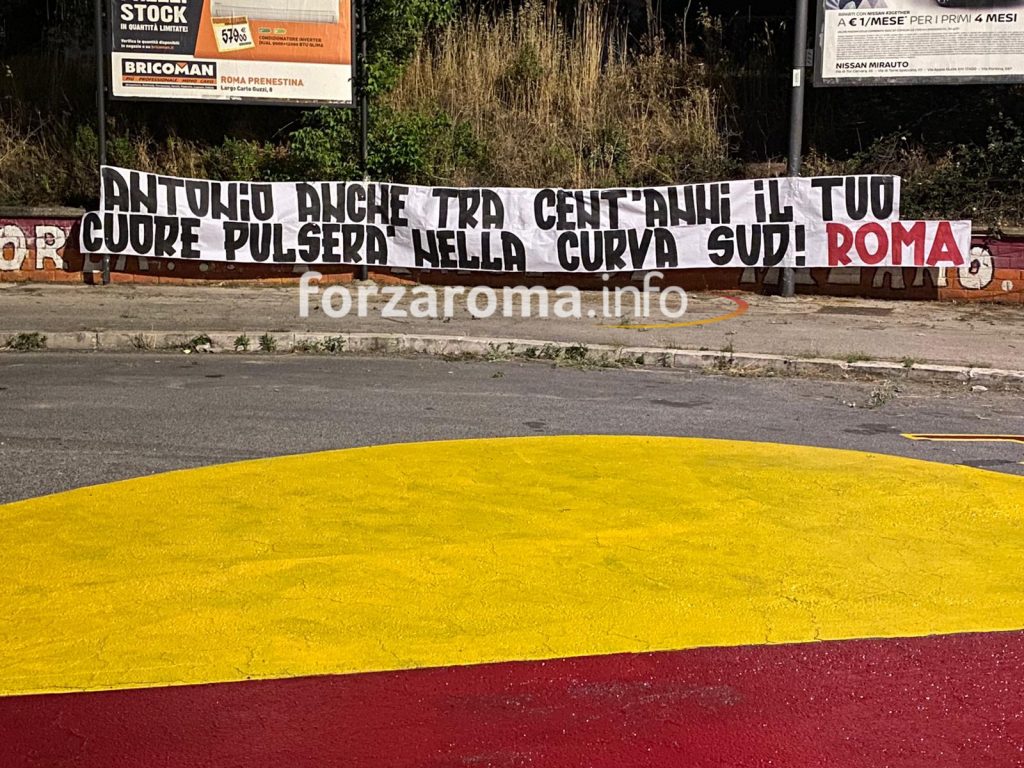 STOCK
IN QUANTITÀ LIMITATE!
579,00
CONDIZIONATORE INVERTER
BRICOMAN
PIÙ PROFESSIONALE MENO CARO
ROMA PRENESTINA
Largo Carlo Guzzi, 8
A € 1/MESE* PER I PRIMI 4 MESI
NISSAN MIRAUTO
ANTONIO ANCHE TRA CENT'ANNI IL TUO
CUORE PULSERA' NELLA CURVA SUD! ROMA
forzaroma.info